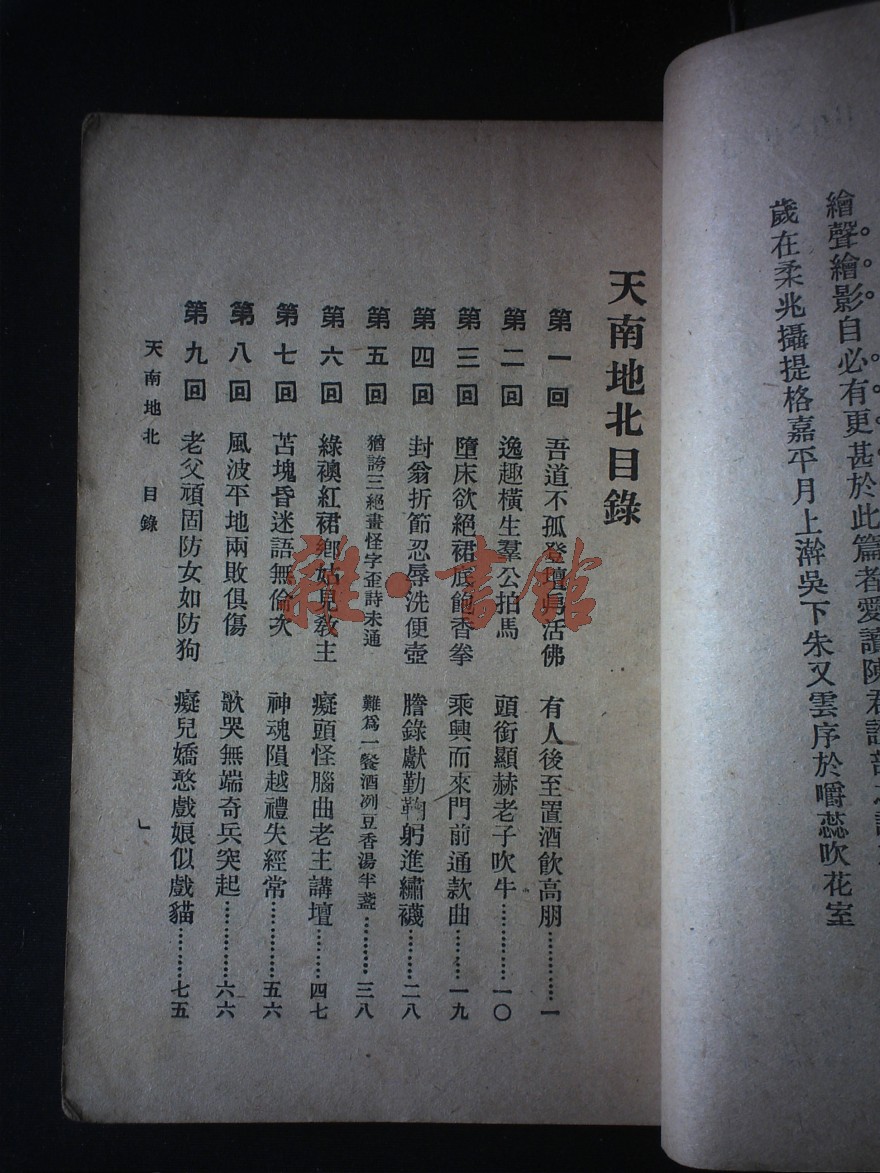 繪聲繪影自必有更甚於此篇者愛讀陳君說部
歲在柔兆攝提格嘉平月上澣吳下朱又雲序於嚼蕊吹花室
天南地北目錄
第一回 吾道不孤登壇眞活佛 有人後至置酒飲高朋…………一
第二回 逸趣橫生羣公拍馬 頭銜顯赫老子吹牛…………一〇
第三回 墮床欲絕裙底飽香拳 乘興而來門前通款曲………一九
第四回 封翁折節忍辱洗便壺 謄錄獻勤鞠躬進繡襪………二八
第五回 猶誇三絕畫怪字歪詩未通 難爲一餐酒冽豆香湯半盞………三八
第六回 綠襖紅裙鄉姑見敎主 癡頭怪腦曲老主講壇………四七
第七回 苫塊昏迷語無倫次 神魂隕越禮失經常…………五六
第八回 風波平地兩敗俱傷 歌哭無端奇兵突起…………六六
第九回 老父頑固防女如防狗 癡兒嬌憨戲娘似戲貓………七五
天南地北 目錄
一
雜·書館